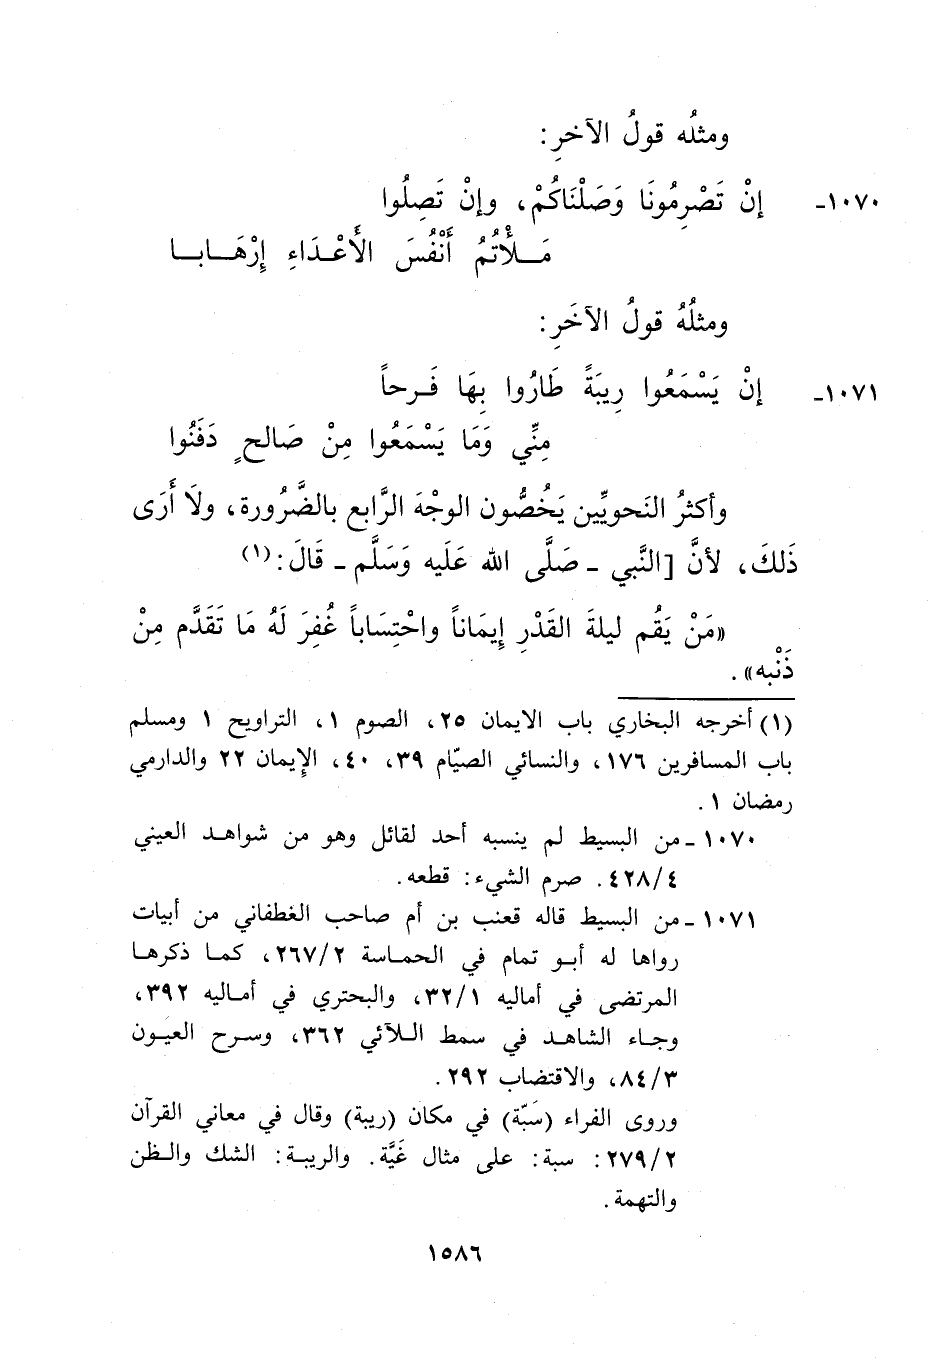 ومثلُه قولُ الآخرِ:
١٠٧٠ـ إنْ تَصْرِمُونَا وَصَلْنَاكُمْ، وإنْ تَصِلُوا
مَـلَأْتُمُ أَنْفُسَ الأَعْـدَاءِ إرْهَـابـا
ومثلُهُ قولُ الآخَرِ:
١٠٧١ـ إنْ يَسْمَعُوا رِيبَةً طَارُوا بِهَا فَـرحاً
مِنِّي وَمَا يَسْمَعُوا مِنْ صَالحٍ دَفَنُوا
وأكثرُ النَحويِّين يَخُصُّون الوجْهَ الرَّابع بالضَّرُورة، ولاَ أَرَى
ذَلكَ، لأنَّ [النَّبي ـ صَلَّى الله عَلَيه وَسَلَّم ـ قَالَ:(١)
«مَنْ يَقُم ليلةَ القَدْرِ إيمَاناً واحْتِسَاباً غُفِرَ لَهُ مَا تَقَدَّم مِنْ
ذَنْبه».
(١) أخرجه البخاري باب الايمان ٢٥، الصوم ١، التراويح ١ ومسلم
باب المسافرين ١٧٦، والنسائي الصيّام ٣٩، ٤٠، الإيمان ٢٢ والدارمي
رمضان ١.
١٠٧٠ـ من البسيط لم ينسبه أحد لقائل وهو من شواهد العيني
٤٢٨/٤. صرم الشيء: قطعه.
١٠٧١ـ من البسيط قاله قعنب بن أم صاحب الغطفاني من أبيات
رواها له أبـو تمام في الحمـاسة ٢٦٧/٢، كمـا ذكرهـا
المرتضى في أماليه ٣٢/١، والبحتري في أمـاليه ٣٩٢،
وجـاء الشاهـد في سمط الـلآئي ٣٦٢، وسـرح العيـون
٨٤/٣، والاقتضاب ٢٩٢.
وروى الفراء (سَبّة) في مكان (ريبة) وقال في معاني القرآن
٢٧٩/٢: سبة: على مثال غَيَّة. والريبـة: الشك والـظن
والتهمة.
١٥٨٦